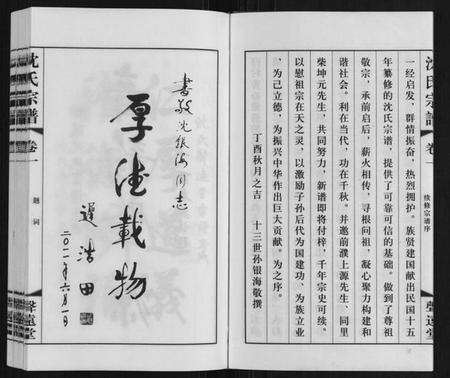 沈氏宗譜
卷一
续修宗谱序
聲遠堂
一经启发，群情振奋，热烈拥护。族贤建国献出民国十五
年纂修的沈氏宗谱，提供了可靠可信的基础。做到了尊祖
敬宗，承前启后，薪火相传，寻根问祖，凝心聚力构建和
谐社会。利在当代，功在千秋。并邀前濮上源先生、同里
柴坤元先生，共同努力，新谱即将付梓，千年宗史可续。
以慰祖宗在天之灵，以激励子孙后代为国建功、为族立业
、为己立德，为振兴中华作出巨大贡献。为之序。
丁酉秋月之吉　十三世孙银海敬撰
書敬沈銀海同志
厚德載物
遲浩田
二〇一一年六月一日
沈氏宗譜
卷一
题词
聲遠堂